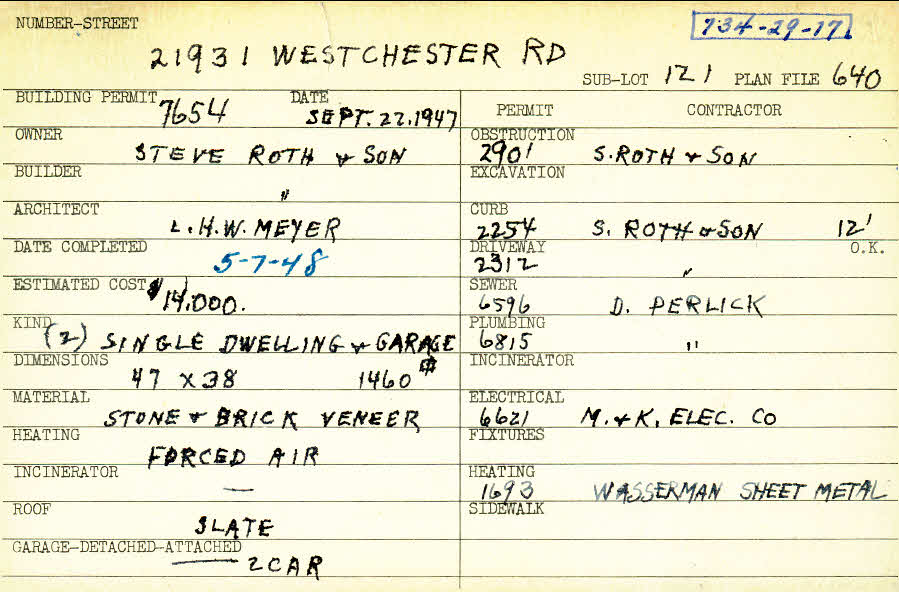 NUMBER-STREET
734-29-17
21931 WESTCHESTER RD
SUB-LOT 121 PLAN FILE 640
BUILDING PERMIT 7654 DATE SEPT. 22, 1947
PERMIT CONTRACTOR
OWNER STEVE ROTH & SON
OBSTRUCTION 2901 S. ROTH & SON
BUILDER "
EXCAVATION
ARCHITECT L. H. W. MEYER
CURB 2254 S. ROTH & SON 12'
DATE COMPLETED 5-7-48
DRIVEWAY 2312 " O.K.
ESTIMATED COST $14,000.
SEWER 6596 D. PERLICK
KIND (2) SINGLE DWELLING & GARAGE
PLUMBING 6815 "
DIMENSIONS 47 X 38 1460
INCINERATOR
MATERIAL STONE & BRICK VENEER
ELECTRICAL 6621 M. & K. ELEC. CO
HEATING FORCED AIR
FIXTURES
INCINERATOR —
HEATING 1693 WASSERMAN SHEET METAL
ROOF SLATE
SIDEWALK
GARAGE-DETACHED-ATTACHED 2 CAR